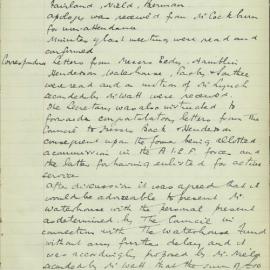 Fairland, Nield, Sherman
Apology was received from Mr Cockburn
for non-attendance
Minutes of last meeting were read and
confirmed
Correspondence Letters from Messrs Eedy, Hamblin
Henderson, Waterhouse, &
were read and on motion of Mr Lynch
seconded by Mr Watt were received.
The Secretary was also instructed to
forward congratulatory letters from the
Council to Messrs Back & Henderson
consequent upon the former being allotted a
commission in the A.I.F. force and
the latter for having enlisted for active
service
After discussion it was agreed that it
would be advisable to present Mr
Waterhouse with the personal present
as determined by The Council in
connection with the Waterhouse fund
without any further delay, and it
was accordingly proposed by Mr
seconded by Mr Watt that the sum of